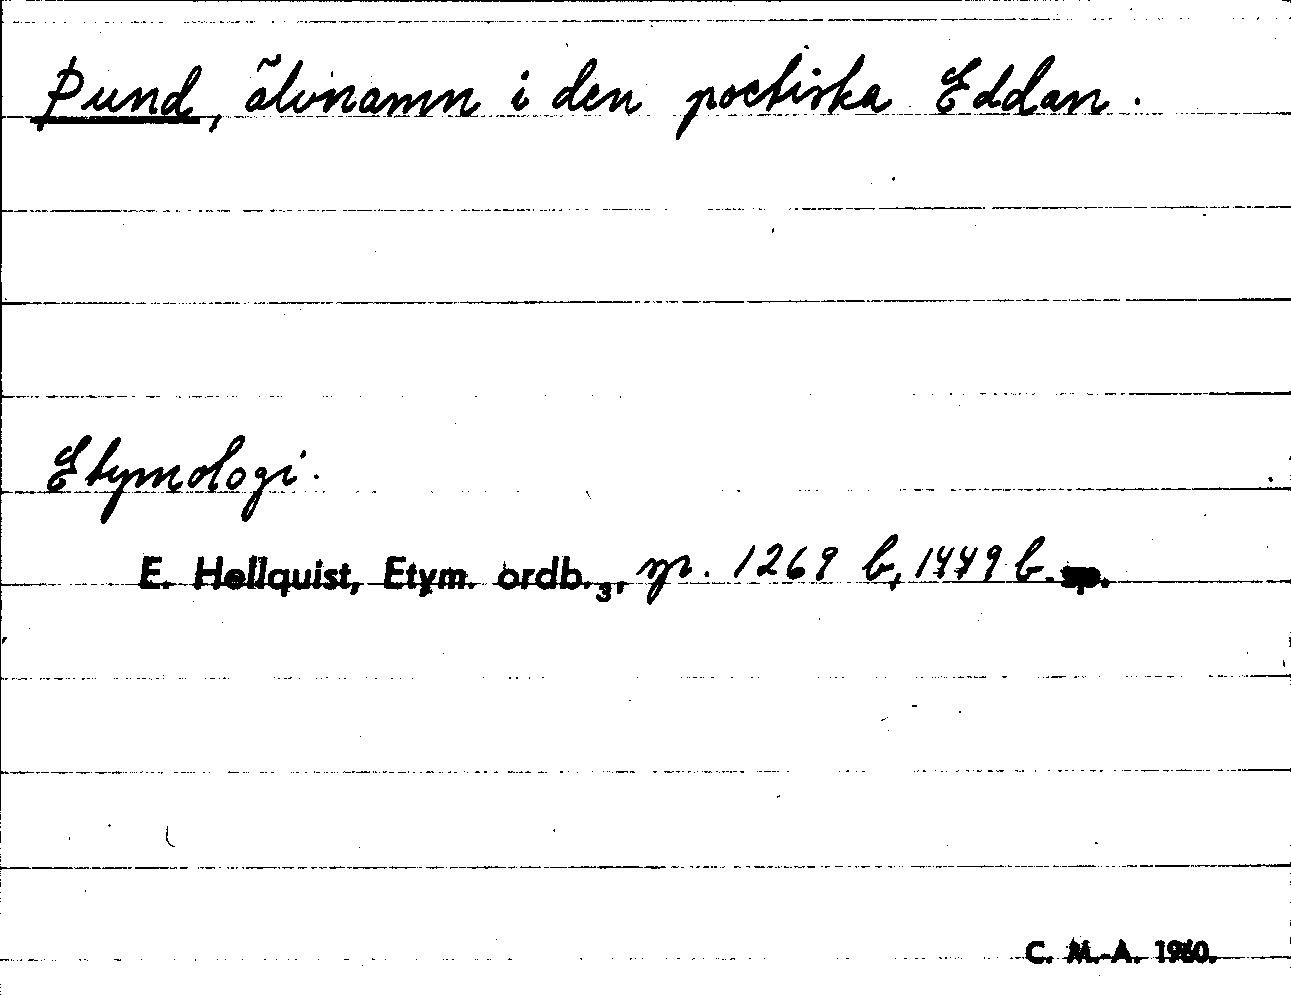 Þund, älvnamn i den poetiska Eddan.
Etymologi.
E. Hellquist, Etym. ordb.₃, sp. 1269 b, 1449 b. sp.
C. M.-A. 1960.